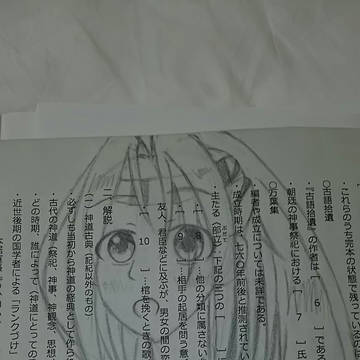 ・これらのうち完本の状態で残っているの
○古語拾遺
・『古語拾遺』の作者は[ 6 ]であ
・朝廷の神事祭祀における[ 7 ]氏
○万葉集
・編者や成立については未詳である。
・成立時期は、七六〇年前後と推測されてい
・主たる〈部立〉下記の三つの
[ 8 ]…他の分類に属さない
[ 9 ]…相手の起居を問う意
友人、君臣などに及ぶが、男女の間の
[ 10 ]…棺を挽くときの歌
二、解説
(一)神道古典(記紀以外のもの)
・必ずしも当初から神道の経典として作ら
・古代の神道(祭祀、神事、神観念、思想
・どの時期、誰によって〈神道にとっての
・近世後期の国学者による「ランクづけ